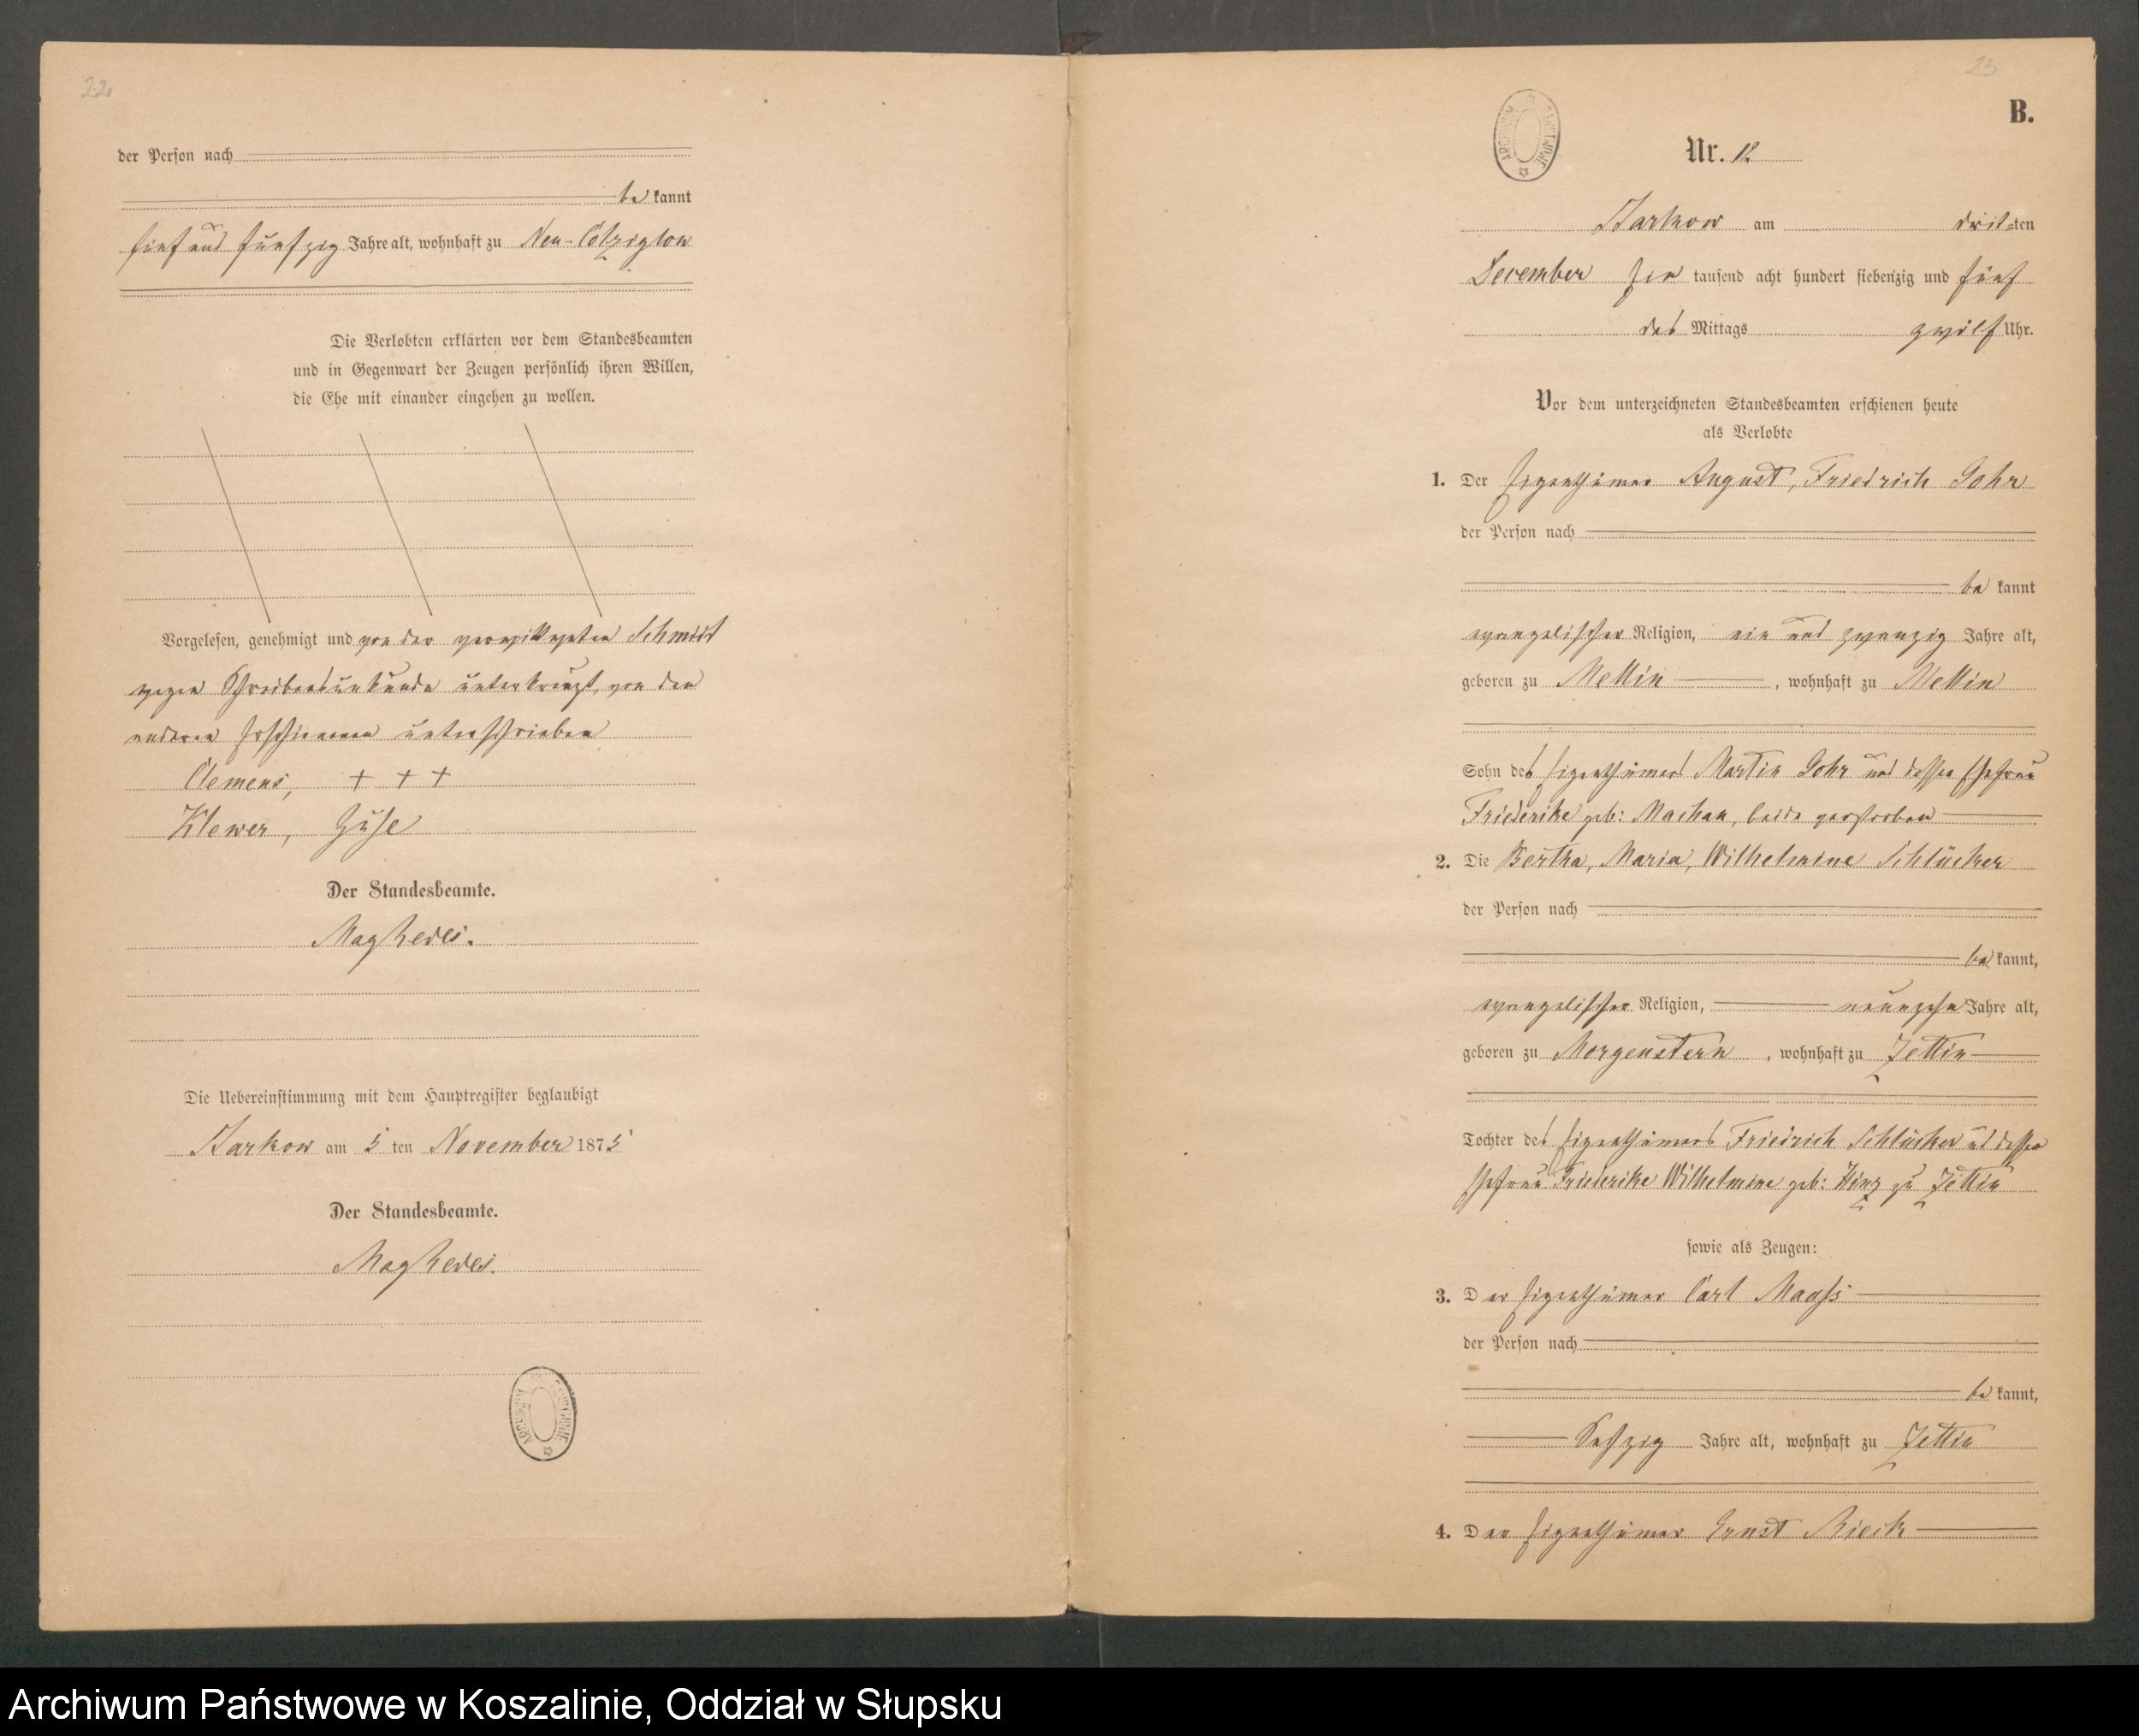 22
der Person nach
be kannt
fünf und fünfzig Jahre alt, wohnhaft zu Neu-Colziglow
Die Verlobten erklärten vor dem Standesbeamten
und in Gegenwart der Zeugen persönlich ihren Willen,
die Ehe mit einander eingehen zu wollen.
Vorgelesen, genehmigt und von der verwittweten Schmidt
wegen Schreibensunkunde unterkreuzt, von den
anderen Erschienenen unterschrieben
Clemens, + + +
Klewer, Guse
Der Standesbeamte.
Die Uebereinstimmung mit dem Hauptregister beglaubigt
Barkow am 5 ten November 1875
Der Standesbeamte.
23
B.
ARCHIWUM PAŃSTWOWE
Nr. 12
Barkow am drit=ten
December ein tausend acht hundert siebenzig und fünf
des Mittags zwölf Uhr.
Vor dem unterzeichneten Standesbeamten erschienen heute
als Verlobte
1. Der Eigenthümer August, Friedrich Gohr
der Person nach
be kannt
evangelischer Religion, ein und zwanzig Jahre alt,
geboren zu Mellin, wohnhaft zu Mellin
Sohn des Eigenthümers Martin Gohr und dessen Ehefrau
Friederike geb: Machan, beide verstorben
2. Die Bertha, Maria, Wilhelmine Schlücker
der Person nach
be kannt,
evangelischer Religion, neunzehn Jahre alt,
geboren zu Morgenstern, wohnhaft zu Zettin
Tochter des Eigenthümers Friedrich Schlücker und dessen
Ehefrau Friederike Wilhelmine geb: Hinz zu Zettin
sowie als Zeugen:
3. Der Eigenthümer Carl Maaß
der Person nach
be kannt,
Sechzig Jahre alt, wohnhaft zu Zettin
4. Der Eigenthümer Ernst Rieck
Archiwum Państwowe w Koszalinie, Oddział w Słupsku